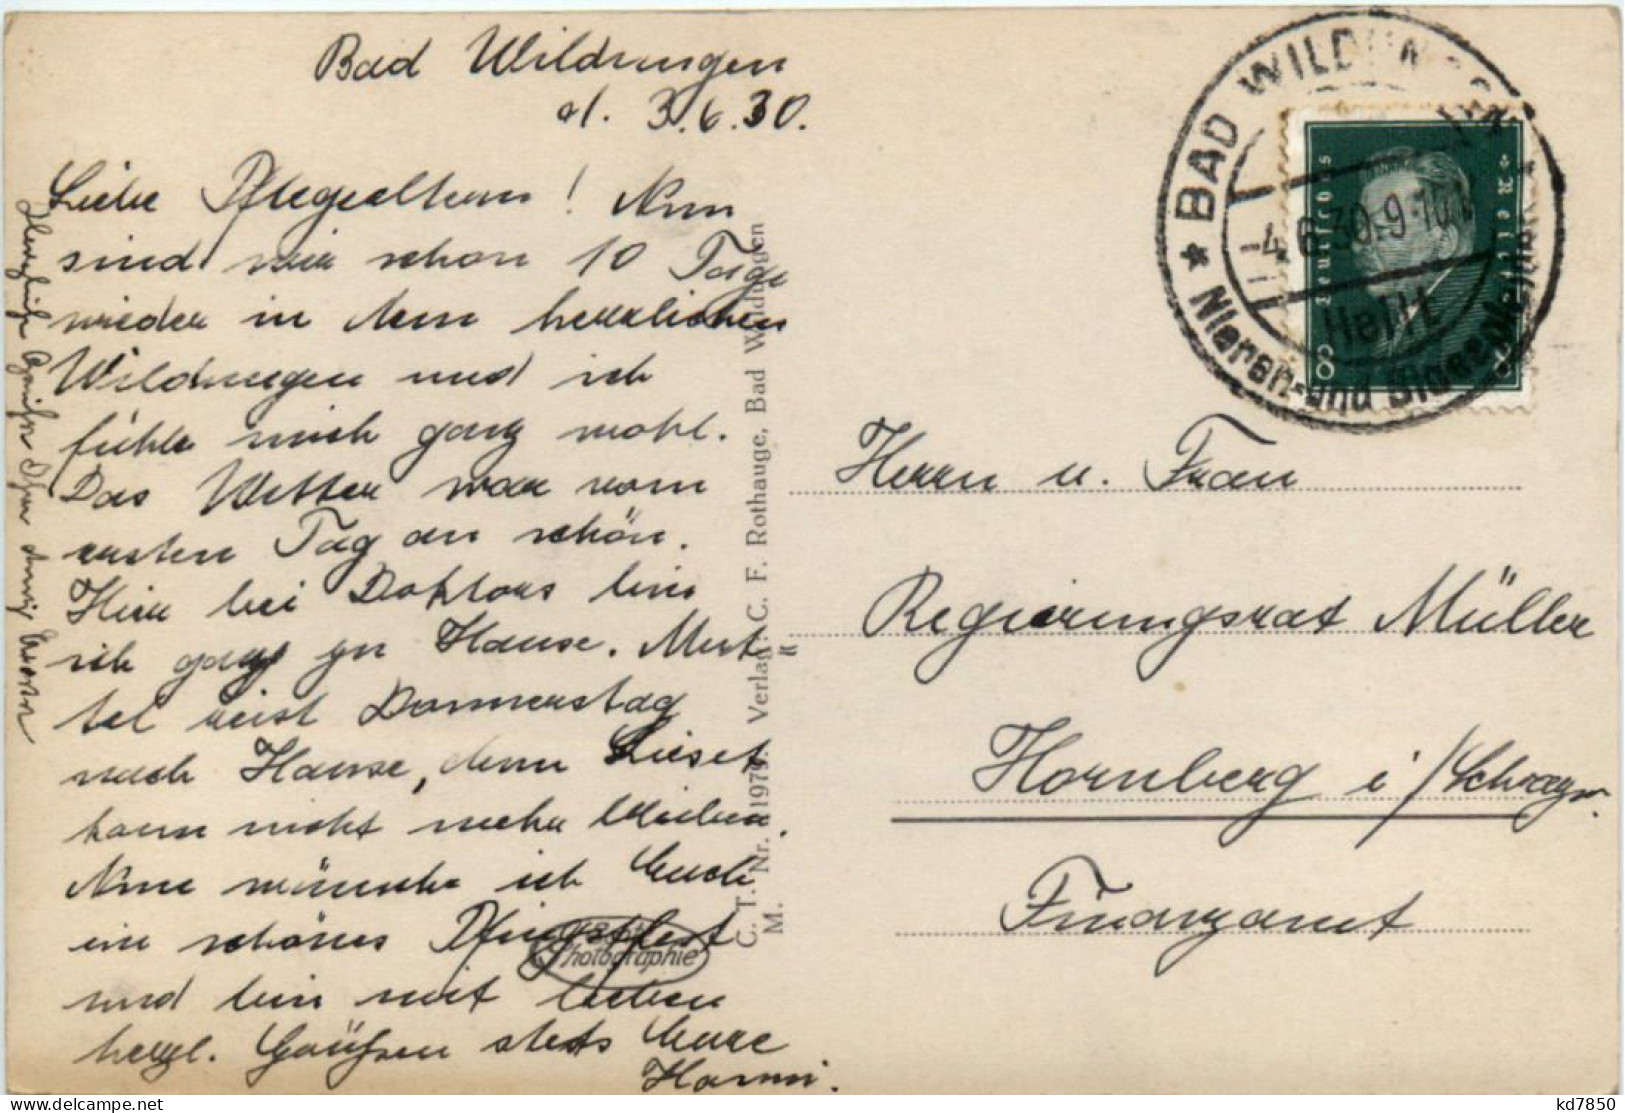 Bad Wildungen
d. 3.6.30.
Liebe Pflegeeltern! Nun
sind wir schon 10 Tage
wieder in dem herrlichen
Wildungen und ich
fühle mich ganz wohl.
Das Wetter war vom
ersten Tag an schön.
Hier bei Doktors bin
ich ganz zu Hause. Mut-
tel reist Donnerstag
nach Hause, denn Liesel
kann nicht mehr bleiben.
Nun wünsche ich Euch
ein schönes Pfingstfest
und bin mit lieben
herzl. Grüßen stets Eure
Hanni.
Herzliche Grüße
C. T. Nr. 1979. Verlag C. F. Rothauge, Bad Wildungen
M.
Photographie
BAD WILDUNGEN
-4.6.30.9-10
Heilt
Nieren- und Blasenleiden
Deutsches Reich
8
Herrn u. Frau
Regierungsrat Müller
Hornberg i/Schwarzw.
Finanzamt
kd7850